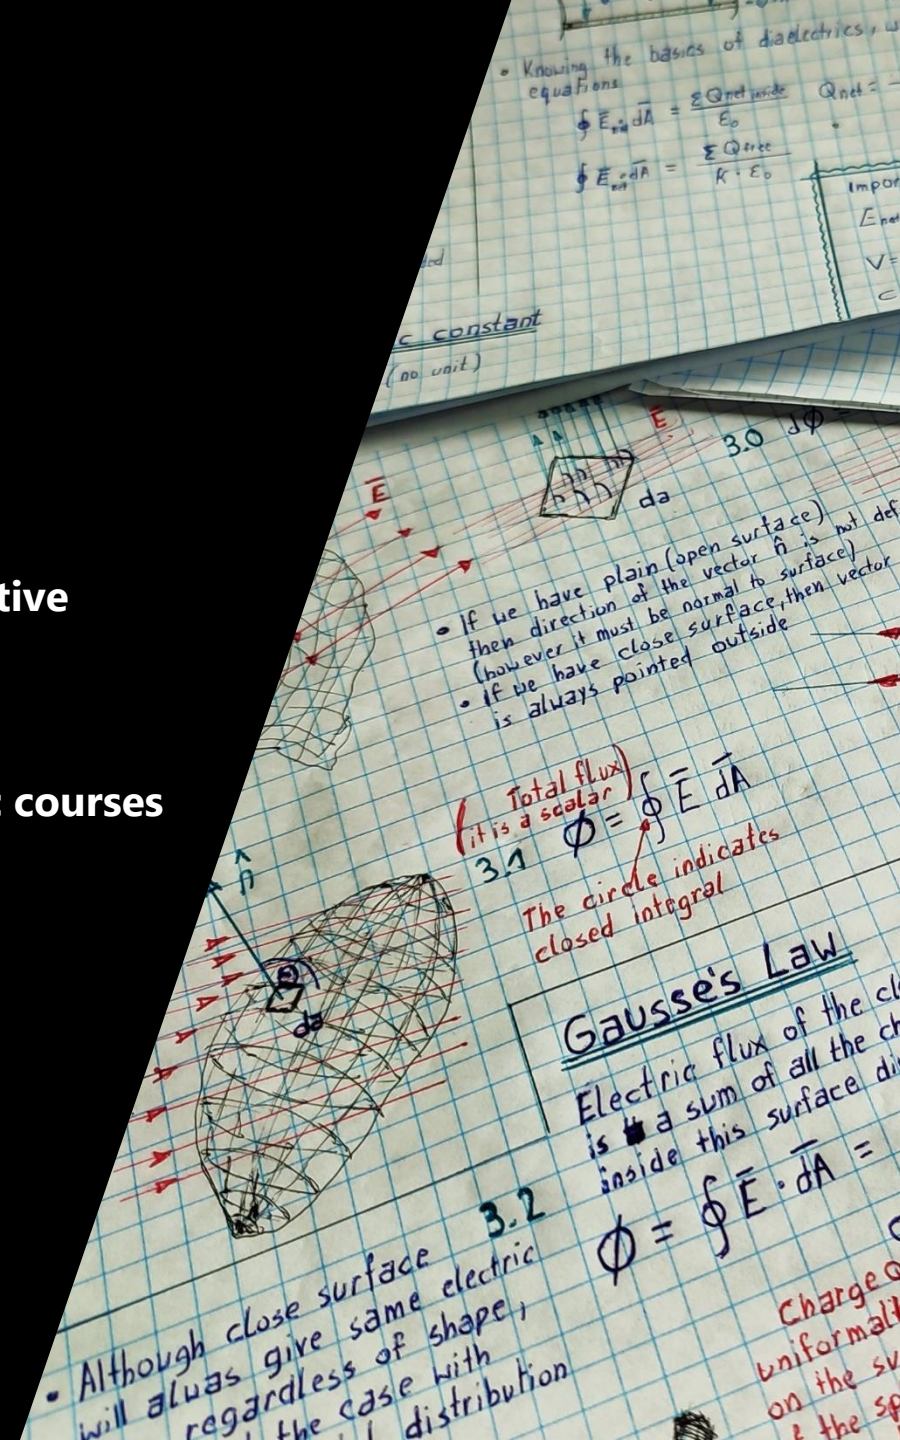 • Knowing the basics of diaelectrics,
equations
∮ E̅net d̅A̅ = ΣQnet inside / ε₀ Qnet =
∮ E̅net d̅A̅ = ΣQfree / K · ε₀
V =
c constant
(no unit)
E̅
E̅
3.0 dΦ =
da
• If we have plain (open surface)
then direction of the vector n̂ is not def
(however it must be normal to surface)
• if we have close surface, then vector
is always pointed outside
tive
courses
(Total flux)
(it is a scalar)
3.1 Φ = ∮ E̅ d̅A̅
The circle indicates
closed integral
n̂
Θ
da
Gausse's Law
Electric flux of the cl
is a sum of all the ch
inside this surface di
3.2 Φ = ∮ E̅ · d̅A̅ =
• Although close surface
will alwas give same electric
regardless of shape,
the case with
distribution
Charge
uniformal
on the su
the sp